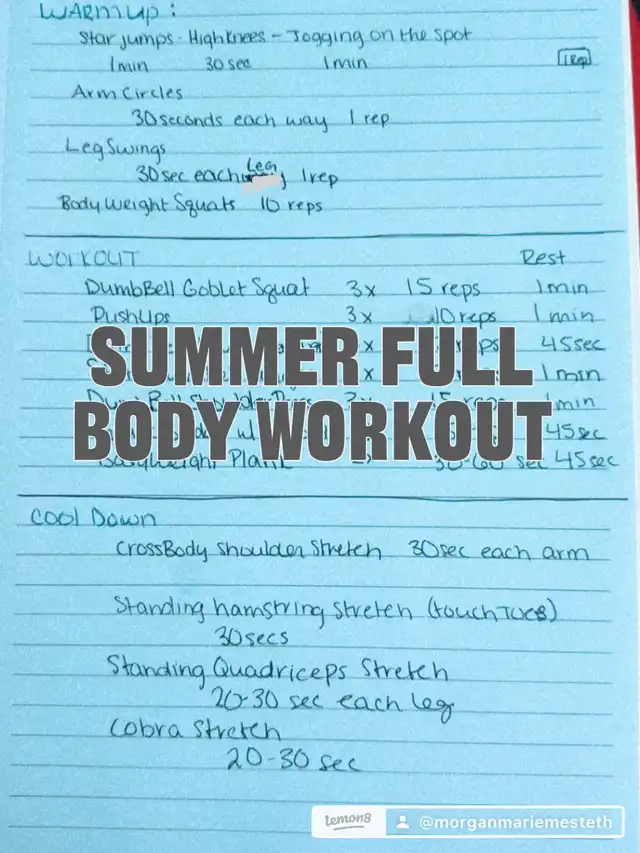 WARMUP:
Star jumps - High Knees - Jogging on the spot
1min 30sec 1min 1 Rep
Arm Circles
30 seconds each way 1 rep
Leg Swings
Leg
30 sec each 1 rep
Body Weight Squats 10 reps
WORKOUT Rest
DumbBell Goblet Squat 3x 15 reps 1min
PushUps 3x 10 reps 1min
x 45sec
x 1min
SUMMER FULL
BODY WORKOUT
1min
45sec
Bodyweight Plank 30-60 sec 45sec
Cool Down
CrossBody shoulder stretch 30sec each arm
Standing hamstring stretch (touch toes)
30secs
Standing Quadriceps Stretch
20-30 sec each leg
Cobra Stretch
20-30 sec
lemon8 @morganmariemesteth